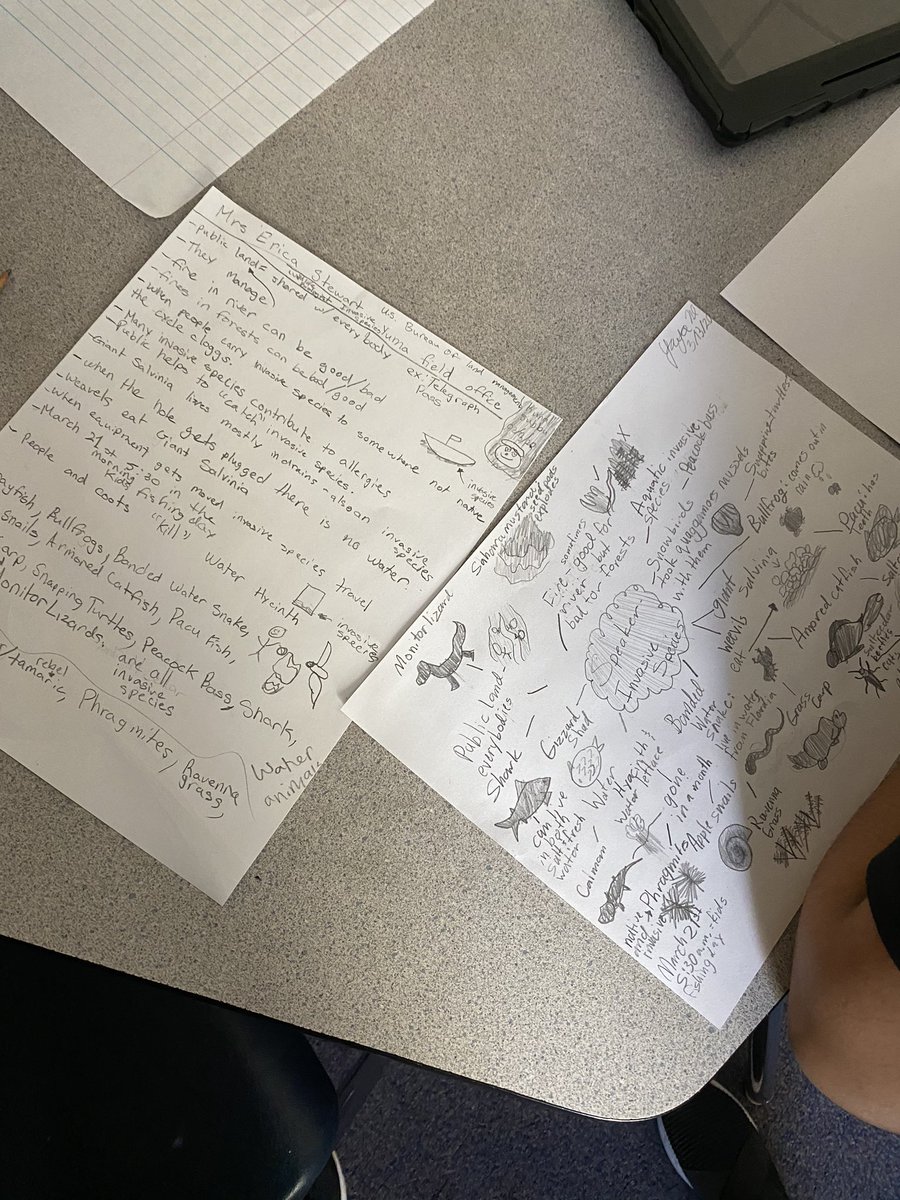 Mrs Erica Stewart U.S. Bureau of land management
works about invasive species Yuma field office
- public land = shared w/ everybody ex: Telegraph Pass
- They manage
- fire in river can be good/bad
- fires in forests can be bad/good
- when people carry invasive species to somewhere
the cycle cloggs
- Many invasive species contribute to allergies
- Public helps to "catch" invasive species.
- Giant Salvinia lives mostly in drains - also an invasive species
- when the hole gets plugged there is no water
- weavels eat Giant Salvinia
- when equipment gets moved invasive species travel
- March 21st 5:30 in the morning Kids fishing day
- people and coots "Kill" Water Hycinth
not native
invasive species
invasive species
Bullfrogs, Banded Water Snake,
Snails, Armored Catfish, Pacu Fish,
Carp, Snapping Turtles, Peacock Bass, Shark,
Monitor Lizards. are all invasive species
Water animals
Phragmites, Ravenna grass,
3/12/20
Sahara mustard: seed pods explodes
Fire sometimes good for river but bad for forests
X
Aquatic invasive species - Peacock bass
- Snowbirds took quagga mussels with them
- Snapping turtles bites
Bullfrog: comes out in rain
Pacu: has teeth
Monitor lizard
Public land - everybodies
Speaker Invasive Species
giant Salvinia
weevils eat
Amored catfish
Shark
can live in both salt + fresh water
Gizzard Shad
Water Hyacinth & water lettuce
gone in a month
Banded water snake: live in water from Florida
Grass Carp
Caiman
native and invasive → Phragmites
Apple snails
Ravenna Grass
March 21st
5:30 a.m. = Kids fishing day